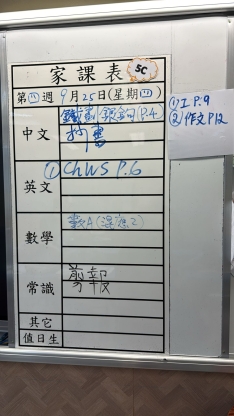 家課表 5C
第四週9月25日(星期四)
中文
鐵畫銀鉤 P.4
抄書
英文
① ChWS P.6
數學
數A
常識
剪報
其它
值日生
① 工 P.9
② 作文 P12